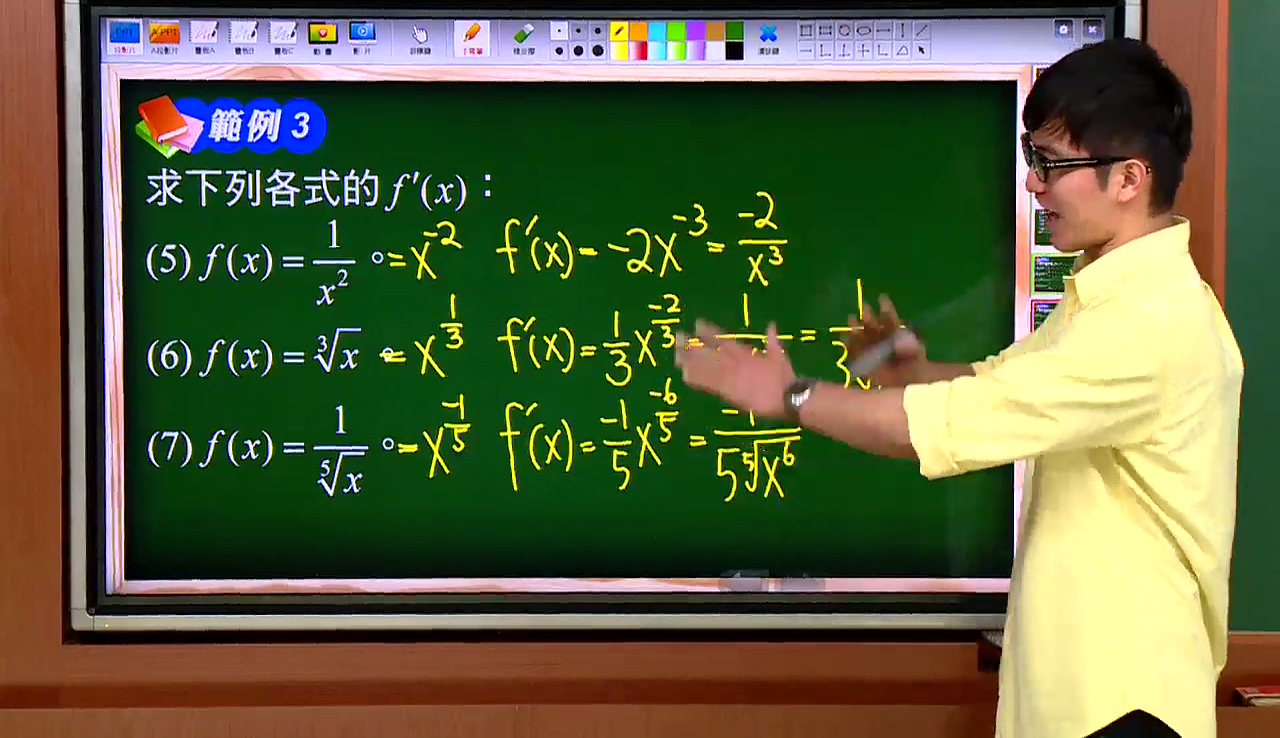 範例 3
求下列各式的 f′(x)：
(5) f(x) = 1/x² 。= x^(-2) f′(x) = -2x^(-3) = -2/x³
(6) f(x) = ∛x 。= x^(1/3) f′(x) = 1/3 x^(-2/3) = 1/ = 1/3
(7) f(x) = 1/⁵√x 。= x^(-1/5) f′(x) = -1/5 x^(-6/5) = -1/(5 ⁵√x⁶)